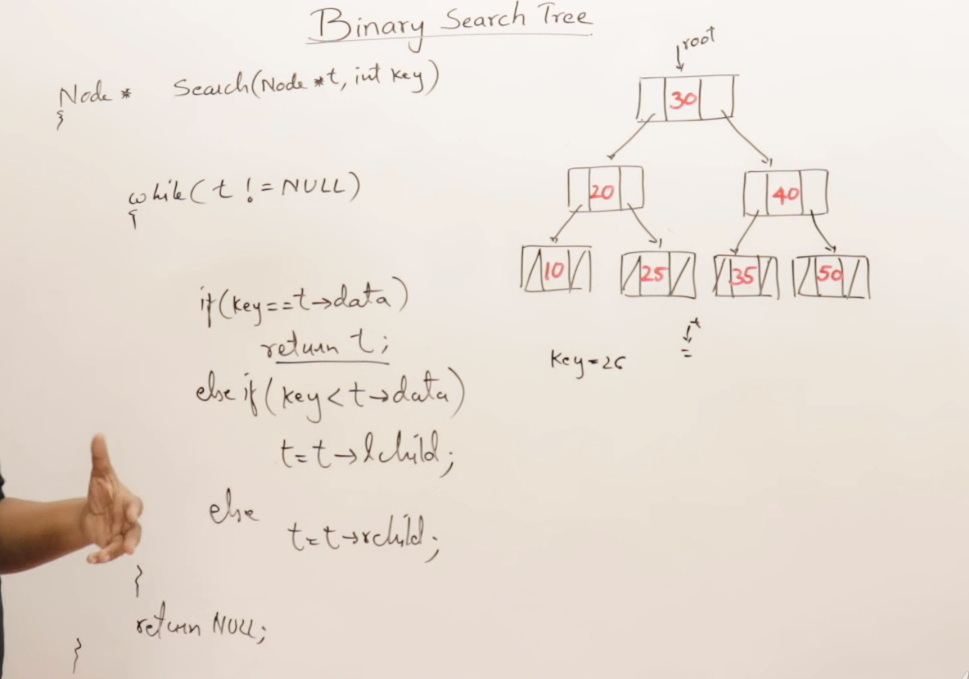 Binary Search Tree
Node * Search(Node *t, int key)
{
while(t != NULL)
{
if(key==t→data)
return t;
else if(key<t→data)
t=t→lchild;
else
t=t→rchild;
}
return NULL;
}
root
30
20 40
10 25 35 50
t
Key=26